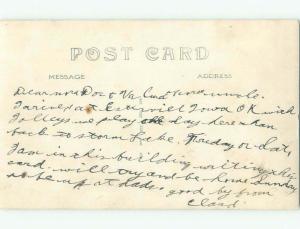 POST CARD
MESSAGE ADDRESS
Dear and
I arived at Estervill Iowa OK with
Folleys we play one day here than
back to storm Lake. Friday or Sat,
I am in this building writing this
card. will try and be home Sunday
to be up at dads. good by from
Claud